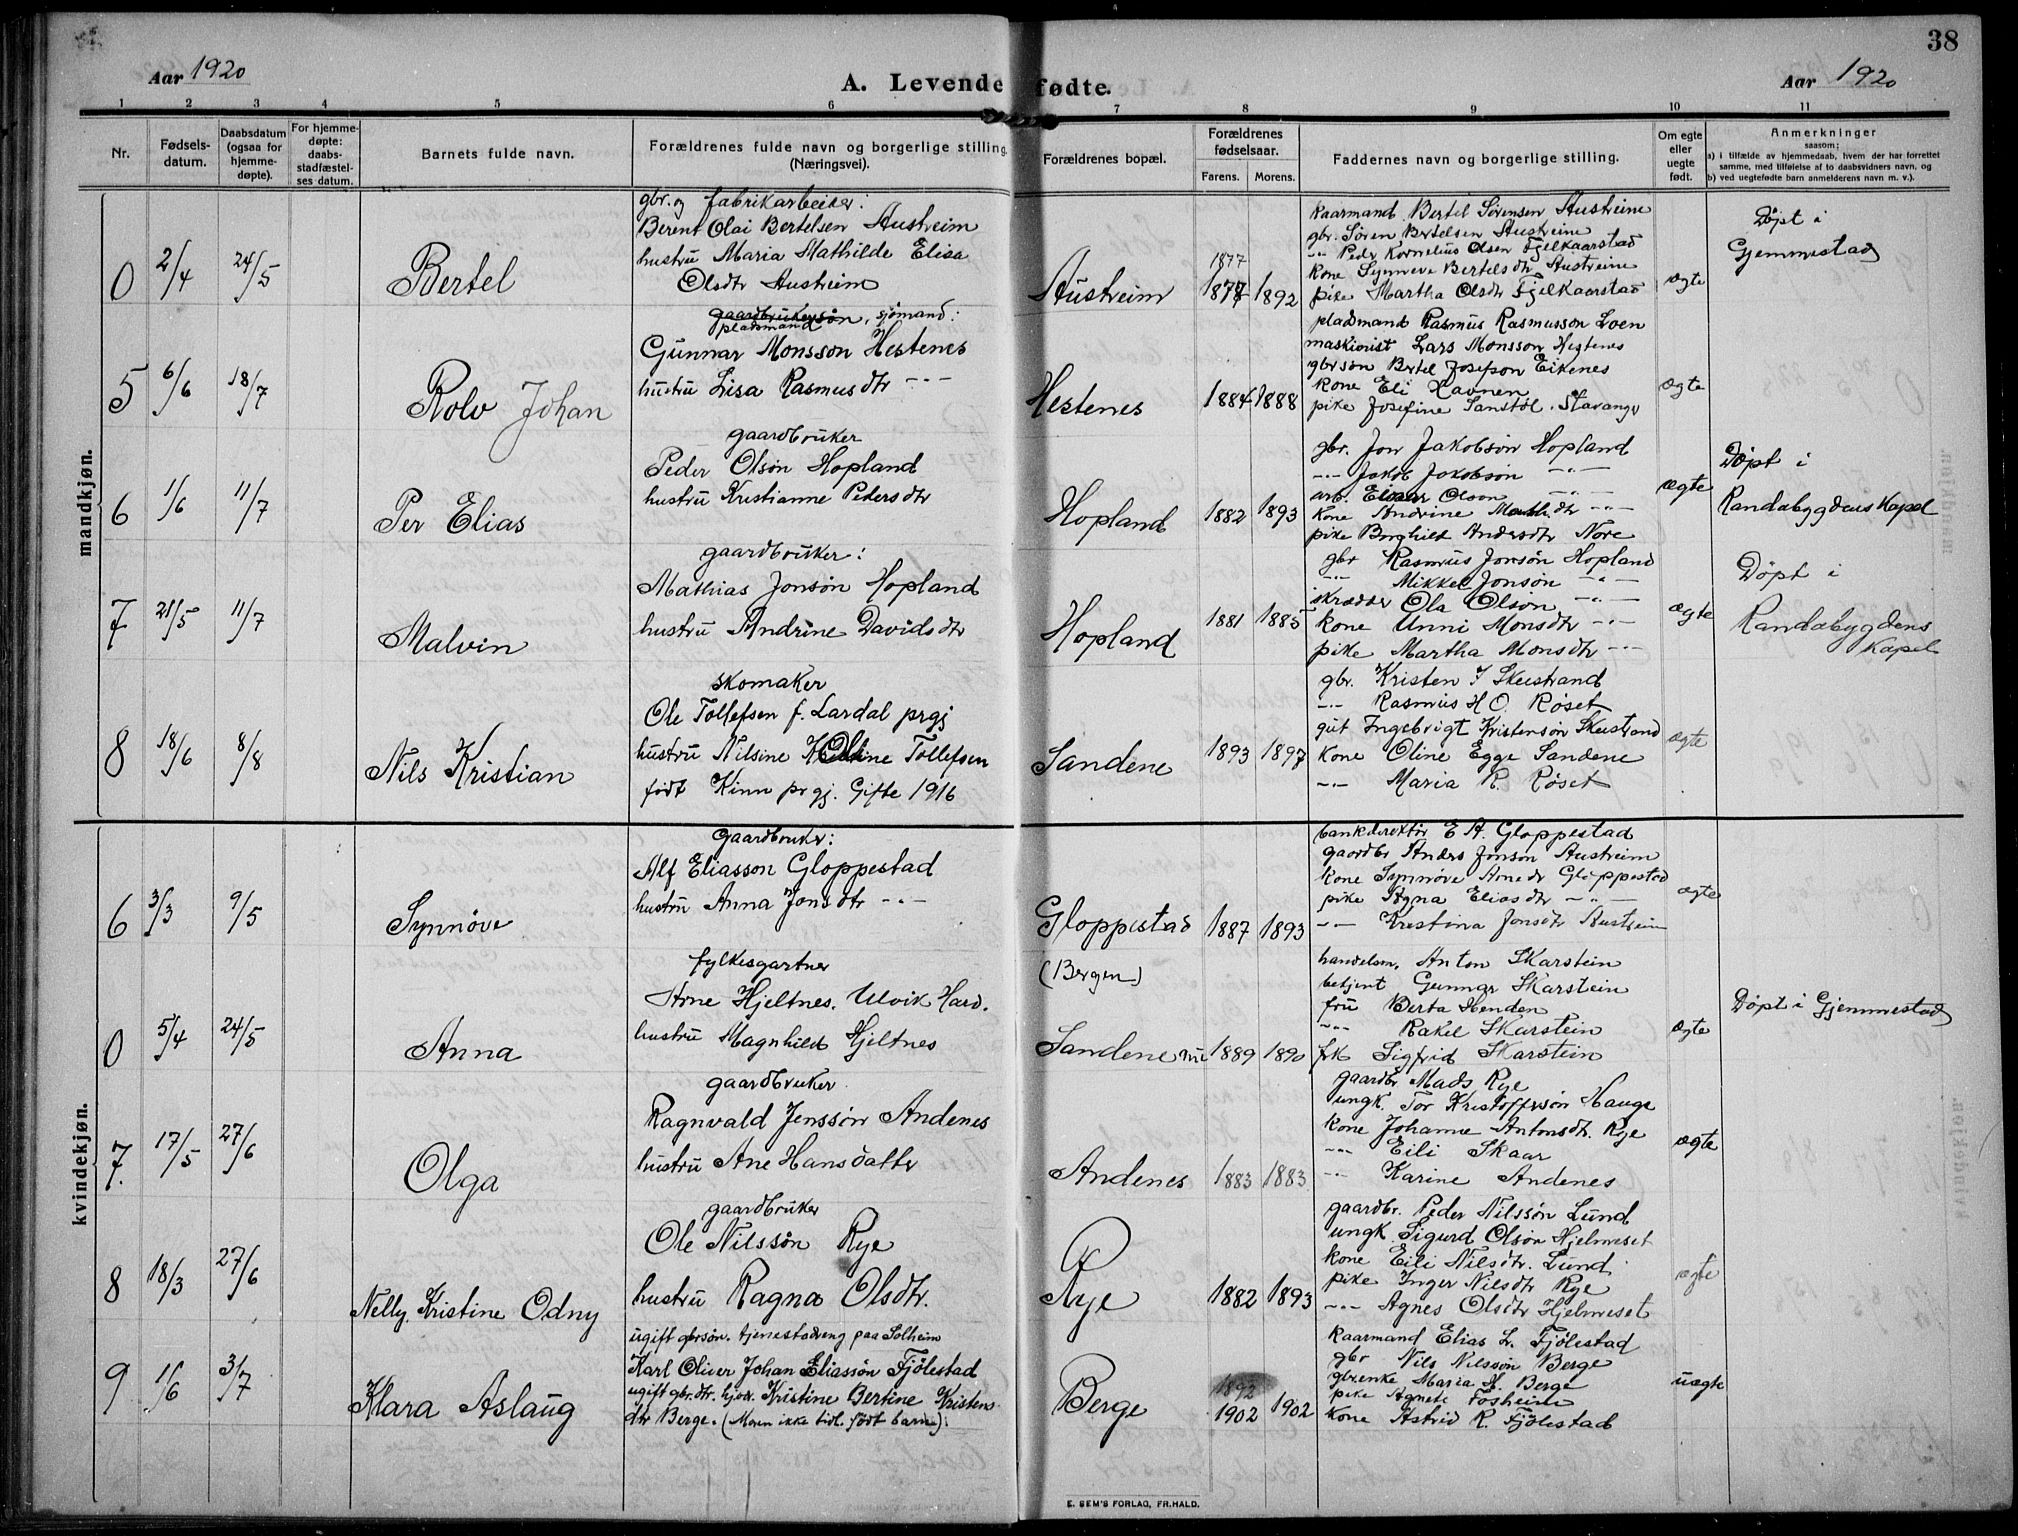 38
Aar 1920
A. Levende fødte.
Aar 1920
1 2 3 4 5 6 7 8 9 10 11
Nr.
Fødsels-
datum.
Daabsdatum
(ogsaa for
hjemme-
døpte).
For hjemme-
døpte:
daabs-
stadfæstel-
ses datum.
Barnets fulde navn.
Forældrenes fulde navn og borgerlige stilling.
(Næringsvei).
Forældrenes bopæl.
Forældrenes
fødselsaar.
Farens. Morens.
Faddernes navn og borgerlige stilling.
Om egte
eller
uegte
født.
Anmerkninger
saasom:
a) i tilfælde av hjemmedaab, hvem der har forrettet
samme, med tilføielse af to daabsvidners navn, og
b) ved uegtefødte barn anmelderens navn m. v.).
mandkjøn.
0 2/4 24/5 Bertel
gbr. og fabrikarbeider:
Berent Olai Bertelsen Austreim
hustru Maria Mathilde Elisa
Olsdtr Austreim
Austreim
1877
1877 1892
kaarmand Bertel Sørensen Austreime
gbr. Søren Bertelsen Austreime
-"- Pedr Kornelius Olsen Fjelkaarstad
kone Synneve Bertelsdtr Austreime
pike Martha Olsdtr Fjelkaarstad
ægte
Døpt i
Gjemmestad
5 6/6 18/7 Rolv Johan
gaardbrukersøn, sjømand:
pladsmand
Gunnar Monsson Hestenes
hustru Lisa Rasmusdtr -"-
Hestenes 1884 1888
pladsmand Rasmus Rasmusson Loen
maskinist Lars Monsson Hestenes
gbrsøn Bertel Josefson Eikenes
kone Eli Ravnen
pike Josefine Sanstøl. Stavanger
ægte
6 1/6 11/7 Per Elias
gaardbruker
Peder Olsøn Hopland
hustru Kristianne Pedersdtr
Hopland 1882 1893
gbr. Jon Jakobsøn Hopland
-"- Jakob Jakobsøn -"-
arb. Einar Olson -"-
kone Andrine Math.dtr -"-
pike Borghild Andersdtr Nore
ægte
Døpt i
Randabygdens Kapel
7 21/5 11/7 Malvin
gaardbruker:
Mathias Jonsøn Hopland
hustru Andrine Davidsdtr
Hopland 1881 1885
gbr Rasmus Jonsøn Hopland
-"- Mikkel Jonsøn -"-
skrædder Ola Olsøn -"-
kone Unni Monsdtr -"-
pike Martha Monsdtr -"-
ægte
Døpt i
Randabygdens
Kapel
8 18/6 8/8 Nils Kristian
skomaker
Ole Tollefsen f. Lardal prgj
hustru Nilsine Oline Tollefsen
født Kinn prgj. Gifte 1916
Sandene 1893 1897
gbr. Kristen I Skeistrand
-"- Rasmus H O. Røset
gut Ingebrigt Kristensøn Skeistrand
kone Oline Egge Sandene
-"- Maria R. Røset
ægte
kvindekjøn.
6 3/3 9/5 Synnøve
Gaardbruker:
Alf Eliasson Gloppestad
hustru Anna Jonsdtr -"-
Gloppestad 1887 1893
bankdirektør E A. Gloppestad
gaardbr Anders Jonson Austreim
kone Synnøve Arnedr Gloppestad
pike Ragna Eliasdtr -"-
-"- Kristina Jonsdtr Austreim
ægte
0 5/4 24/5 Anna
fylkesgartner
Arne Hjeltnes. Ulvik Hard.
hustru Magnhild Hjeltnes
(Bergen)
Sandene nu 1889 1890
handelsm. Anton Skarstein
betjent Gunnar Skarstein
fru Berta Henden
-"- Rakel Skarstein
frk Sigfrid Skarstein
ægte
Døpt i Gjemmestad
7. 17/5 27/6 Olga
gaardbruker
Ragnvald Jenssøn Andenes
hustru Ane Hansdatter
Andenes 1883 1883
gaardbr. Mads Rye
ungk. Tor Kristoffersøn Hauge
kone Johanne Antonsdtr. Rye
-"- Eili Skaar
-"- Karine Andenes
ægte
8 18/3 27/6 Nelly Kristine Odny
gaardbruker
Ole Nilssøn Rye
hustru Ragna Olsdtr.
Rye 1882 1893
gaardbr. Peder Nilssøn Lund
ungk Sigurd Olsøn Hjelmeset
kone Eili Nilsdtr. Lund
pike Inger Nilsdtr Rye
-"- Agnes Olsdtr Hjelmeset
ægte
9 1/6 3/7 Klara Aslaug
ugift gbrsøn. tjenestedreng paa Solheim
Karl Oliver Johan Eliassøn Fjølestad
ugift gbr.dtr. hjem. Kristine Bertine Kristens
dtr Berge. (Moren ikke tidl. født barn).
Berge
1892
1902 1902
kaarmand Elias L. Fjølestad
gbr Nils Nilssøn Berge
gbrenke Maria H. Berge
pike Agnete Fosheim
kone Astrid R. Fjølestad
uægte
E. SEM'S FORLAG, FR.HALD.